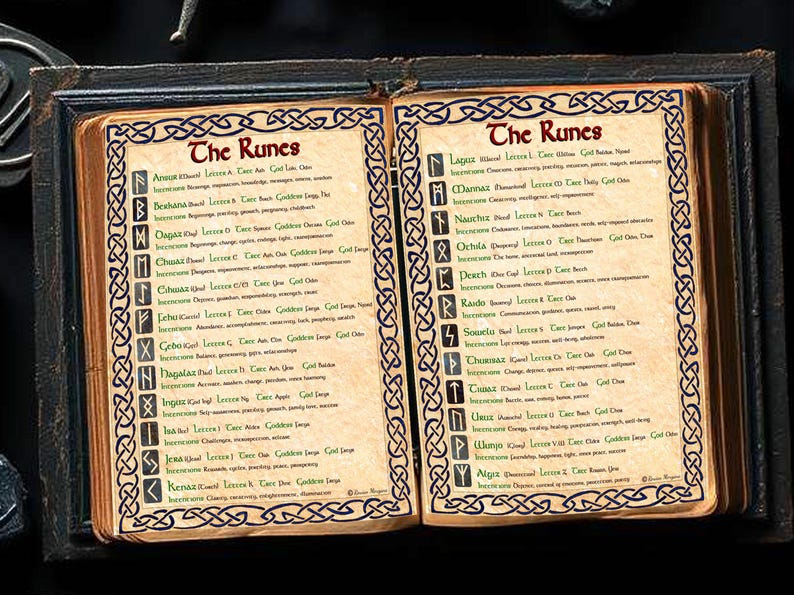 The Runes
Ansur (Mouth) Letter A Tree Ash God Loki, Odin
Intentions Blessings, inspiration, knowledge, messages, omens, wisdom
Berkana (Birch) Letter B Tree Birch Goddess Frigg, Hel
Intentions Beginnings, fertility, growth, pregnancy, childbirth
Dagaz (Day) Letter D Tree Spruce Goddess Ostara God Odin
Intentions Beginnings, change, cycles, endings, light, transformation
Ehwaz (Horse) Letter E Tree Ash, Oak Goddess Freya God Freyr
Intentions Progress, improvement, relationships, support, transformation
Eihwaz (Yew) Letter E/EI Tree Yew God Odin
Intentions Defence, guardian, responsibility, strength, trust
Fehu (Cattle) Letter F Tree Elder Goddess Freya God Freyr, Njord
Intentions Abundance, accomplishment, creativity, luck, prophecy, wealth
Gebo (Gift) Letter G Tree Ash, Elm Goddess Freya God Odin
Intentions Balance, generosity, gifts, relationships
Hagalaz (Hail) Letter H Tree Ash, Yew God Baldur
Intentions Activate, awaken, change, freedom, inner harmony
Inguz (God Ing) Letter Ng Tree Apple God Freyr
Intentions Self-awareness, fertility, growth, family love, success
Isa (Ice) Letter I Tree Alder Goddess Freya
Intentions Challenges, introspection, release
Jera (Year) Letter J Tree Oak Goddess Freya God Freyr
Intentions Rewards, cycles, fertility, peace, prosperity
Kenaz (Torch) Letter K Tree Pine Goddess Freya
Intentions Clarity, creativity, enlightenment, illumination
The Runes
Laguz (Water) Letter L Tree Willow God Baldur, Njord
Intentions Emotions, creativity, fertility, intuition, justice, magick, relationships
Mannaz (Humankind) Letter M Tree Holly God Odin
Intentions Creativity, intelligence, self-improvement
Nauthiz (Need) Letter N Tree Beech
Intentions Endurance, limitations, boundaries, needs, self-imposed obstacles
Othila (Property) Letter O Tree Hawthorn God Odin, Thor
Intentions The home, ancestral land, introspection
Perth (Dice Cup) Letter P Tree Beech
Intentions Decisions, choices, illumination, secrets, inner transformation
Raido (Journey) Letter R Tree Oak
Intentions Communication, guidance, quests, travel, unity
Sowelu (Sun) Letter S Tree Juniper God Baldur, Thor
Intentions Life energy, success, well-being, wholeness
Thurisaz (Giant) Letter Th Tree Oak God Thor
Intentions Change, defence, quests, self-improvement, willpower
Tiwaz (Thorn) Letter T Tree Oak God Thor
Intentions Battle, war, enemy, honor, justice
Uruz (Aurochs) Letter U Tree Birch God Thor
Intentions Energy, vitality, healing, purification, strength, well-being
Wunjo (Glory) Letter V,W Tree Elder Goddess Freya God Odin
Intentions Friendship, happiness, light, inner peace, success
Algiz (Protection) Letter Z Tree Rowan, Yew
Intentions Defence, control of emotions, protection, purity